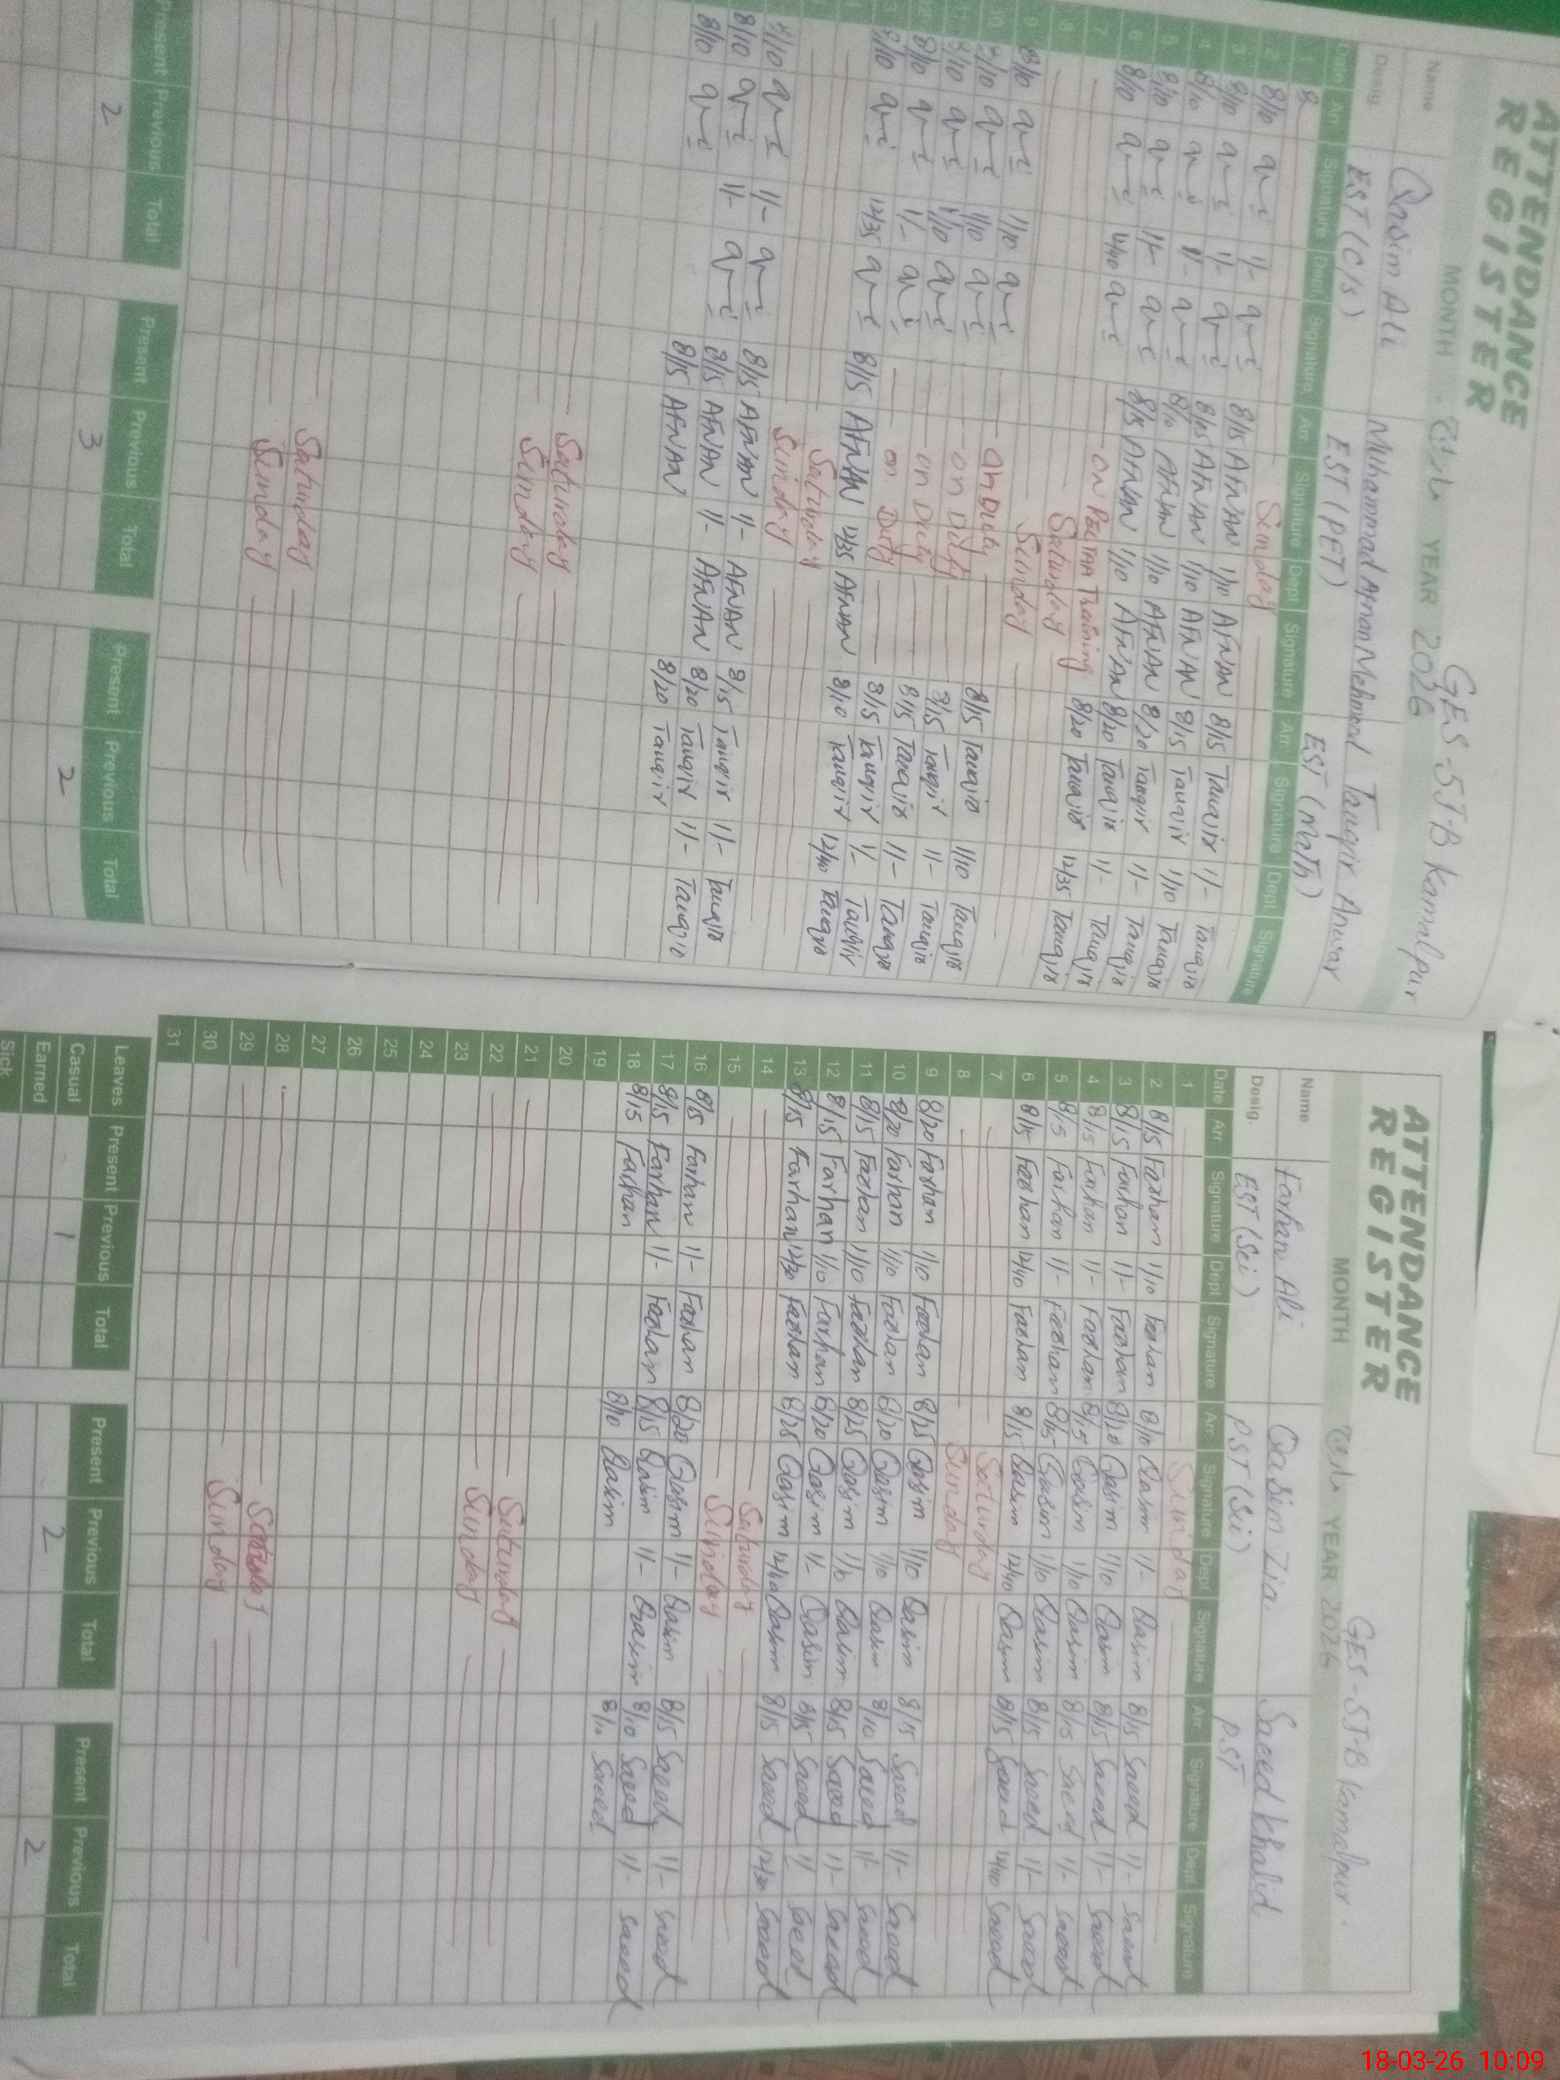 ATTENDANCE
REGISTER
GES-5J-B Kamalpur
MONTH YEAR 2026
Name Qasim Ali Muhammad Afnan Mehmood Tauqir Anwar
Desig. EST (C/S) EST (PET) EST (Math)
Date Arr Signature Dept Signature Arr Signature Dept Signature Arr Signature Dept Signature
1 Sunday
2 8/10 1/- 8/15 AFNAN 1/10 AFNAN 8/15 Tauqir 1/- Tauqir
3 8/10 1/- 8/15 AFNAN 1/10 AFNAN 8/15 Tauqir 1/10 Tauqir
4 8/10 1/- 8/10 AFNAN 1/10 AFNAN 8/20 Tauqir 1/- Tauqir
5 8/10 1/- 8/15 AFNAN 1/10 AFNAN 8/20 Tauqir 1/- Tauqir
6 8/10 12/40 on Training 8/20 Tauqir 12/35 Tauqir
7 Saturday
8 Sunday
9 8/10 1/10 on Duty 8/15 Tauqir 1/10 Tauqir
8/10 1/10 on Duty 8/15 Tauqir 1/- Tauqir
8/10 1/10 on Duty 8/15 Tauqir 1/- Tauqir
8/10 1/- on Duty 8/15 Tauqir 1/- Tauqir
8/10 12/35 8/15 AFNAN 12/35 AFNAN 8/10 Tauqir 12/40 Tauqir
Saturday
Sunday
8/10 1/- 8/15 AFNAN 1/- AFNAN 8/15 Tauqir 1/- Tauqir
8/10 1/- 8/15 AFNAN 1/- AFNAN 8/20 Tauqir 1/- Tauqir
8/10 8/15 AFNAN 8/20 Tauqir
Saturday
Sunday
Saturday
Sunday
Present Previous Total Present Previous Total Present Previous Total
2 3 2
ATTENDANCE
REGISTER
GES-5J-B Kamalpur.
MONTH YEAR 2026
Name Farhan Ali Qasim Zia. Saeed Khalid
Desig. EST (Sci) PST (Sci) PST
Date Arr Signature Dept Signature Arr Signature Dept Signature Arr Signature Dept Signature
1 Sunday
2 8/15 Farhan 1/10 Farhan 8/10 Qasim 1/- Qasim 8/15 Saeed 1/- Saeed
3 8/15 Farhan 1/- Farhan 8/20 Qasim 1/10 Qasim 8/15 Saeed 1/- Saeed
4 8/15 Farhan 1/- Farhan 8/15 Qasim 1/10 Qasim 8/15 Saeed 1/- Saeed
5 8/15 Farhan 1/- Farhan 8/15 Qasim 1/10 Qasim 8/15 Saeed 1/- Saeed
6 8/15 Farhan 12/40 Farhan 8/15 Qasim 12/40 Qasim 8/15 Saeed 12/40 Saeed
7 Saturday
8 Sunday
9 8/20 Farhan 1/10 Farhan 8/25 Qasim 1/10 Qasim 8/15 Saeed 1/- Saeed
10 8/20 Farhan 1/10 Farhan 8/20 Qasim 1/10 Qasim 8/10 Saeed 1/- Saeed
11 8/15 Farhan 1/10 Farhan 8/25 Qasim 1/10 Qasim 8/15 Saeed 1/- Saeed
12 8/15 Farhan 1/10 Farhan 8/20 Qasim 1/- Qasim 8/15 Saeed 1/- Saeed
13 8/15 Farhan 12/30 Farhan 8/25 Qasim 12/40 Qasim 8/15 Saeed 12/30 Saeed
14 Saturday
15 Sunday
16 8/15 Farhan 1/- Farhan 8/20 Qasim 1/- Qasim 8/15 Saeed 1/- Saeed
17 8/15 Farhan 1/- Farhan 8/15 Qasim 1/- Qasim 8/10 Saeed 1/- Saeed
18 8/15 Farhan 8/10 Qasim 8/10 Saeed
19
20
21 Saturday
22 Sunday
23
24
25
26
27
28 Saturday
29 Sunday
30
31
Leaves Present Previous Total Present Previous Total Present Previous Total
Casual 1 2 2
Earned
Sick
18-03-26 10:09